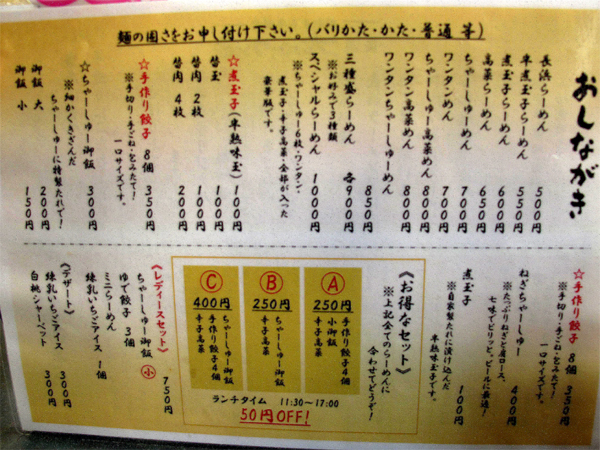 麺の固さをお申し付け下さい。(バリかた・かた・普通 等)
おしながき
長浜らーめん 500円
半煮玉子らーめん 550円
煮玉子らーめん 600円
高菜らーめん 650円
ちゃーしゅーめん 700円
ワンタンめん 700円
ちゃーしゅー高菜めん 800円
ワンタン高菜めん 800円
ワンタンちゃーしゅーめん 850円
三種盛らーめん 各900円
※お好みで3種類
スペシャルらーめん 1000円
※ちゃーしゅー6枚・ワンタン・
煮玉子・辛子高菜・全格が入った
豪華版です。
☆煮玉子(半熟味玉) 100円
替玉 100円
替肉 2枚 100円
替肉 4枚 200円
☆手作り餃子 8個 350円
※手切り・手ごね・包みたて!
一口サイズです。
☆ちゃーしゅー御飯 300円
※細かくきざんだ
ちゃーしゅーに特製たれで!
御飯 大 200円
御飯 小 150円
☆手作り餃子 8個 350円
※手切り・手ごね・包みたて!
一口サイズです。
ねぎちゃーしゅー 400円
※たっぷりねぎと肩ロース、
七味でピリッと。ビールに最適!
煮玉子 100円
※自家製たれに漬け込んだ
半熟味玉子です。
《お得なセット》
※上記全てのらーめんに
合わせてどうぞ!
A
250円
手作り餃子4個
小御飯
辛子高菜
B
250円
ちゃーしゅー御飯
辛子高菜
C
400円
ちゃーしゅー御飯
手作り餃子4個
辛子高菜
ランチタイム 11:30~17:00
50円OFF!
《レディースセット》 750円
ちゃーしゅー御飯 小
ゆで餃子 3個
ミニらーめん
練乳いちごアイス 1個
《デザート》
練乳いちごアイス 300円
白桃シャーベット 300円